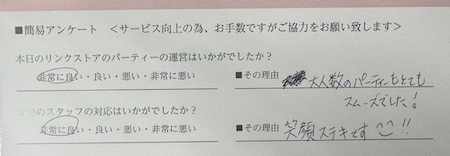 ■簡易アンケート <サービス向上の為、お手数ですがご協力をお願い致します>
本日のリンクストアのパーティーの運営はいかがでしたか?
非常に良い・良い・悪い・非常に悪い ■その理由 大人数のパーティもとても
スムーズでした!
のスタッフの対応はいかがでしたか?
非常に良い・良い・悪い・非常に悪い ■その理由 笑顔ステキです!!